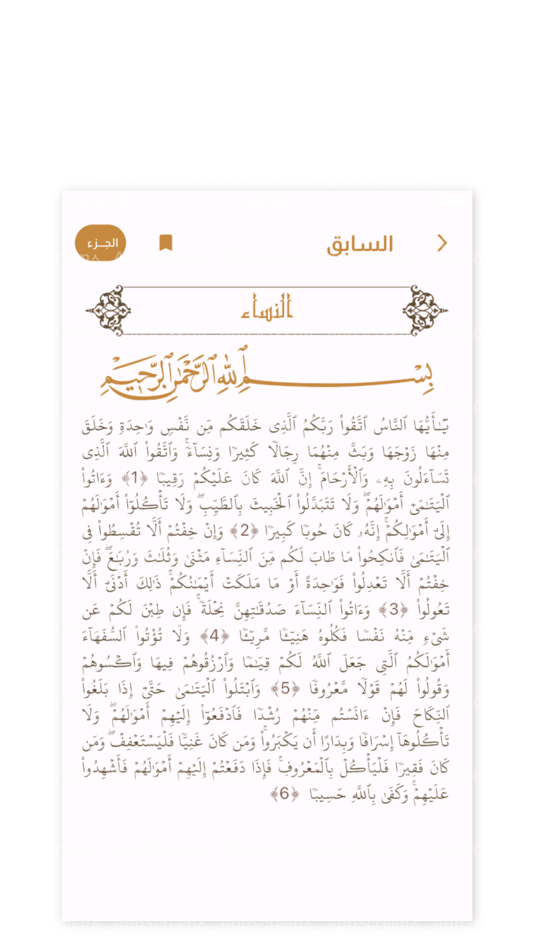 السابق
الجـزء
النساء
بِسْمِ اللَّهِ الرَّحْمَٰنِ الرَّحِيمِ
يَٰٓأَيُّهَا ٱلنَّاسُ ٱتَّقُوا۟ رَبَّكُمُ ٱلَّذِى خَلَقَكُم مِّن نَّفْسٍ وَٰحِدَةٍ وَخَلَقَ
مِنْهَا زَوْجَهَا وَبَثَّ مِنْهُمَا رِجَالًا كَثِيرًا وَنِسَآءً ۚ وَٱتَّقُوا۟ ٱللَّهَ ٱلَّذِى
تَسَآءَلُونَ بِهِۦ وَٱلْأَرْحَامَ ۚ إِنَّ ٱللَّهَ كَانَ عَلَيْكُمْ رَقِيبًا ﴿1﴾ وَءَاتُوا۟
ٱلْيَتَٰمَىٰٓ أَمْوَٰلَهُمْ ۖ وَلَا تَتَبَدَّلُوا۟ ٱلْخَبِيثَ بِٱلطَّيِّبِ ۖ وَلَا تَأْكُلُوٓا۟ أَمْوَٰلَهُمْ
إِلَىٰٓ أَمْوَٰلِكُمْ ۚ إِنَّهُۥ كَانَ حُوبًا كَبِيرًا ﴿2﴾ وَإِنْ خِفْتُمْ أَلَّا تُقْسِطُوا۟ فِى
ٱلْيَتَٰمَىٰ فَٱنكِحُوا۟ مَا طَابَ لَكُم مِّنَ ٱلنِّسَآءِ مَثْنَىٰ وَثُلَٰثَ وَرُبَٰعَ ۖ فَإِنْ
خِفْتُمْ أَلَّا تَعْدِلُوا۟ فَوَٰحِدَةً أَوْ مَا مَلَكَتْ أَيْمَٰنُكُمْ ۚ ذَٰلِكَ أَدْنَىٰٓ أَلَّا
تَعُولُوا۟ ﴿3﴾ وَءَاتُوا۟ ٱلنِّسَآءَ صَدُقَٰتِهِنَّ نِحْلَةً ۚ فَإِن طِبْنَ لَكُمْ عَن
شَىْءٍ مِّنْهُ نَفْسًا فَكُلُوهُ هَنِيٓـًٔا مَّرِيٓـًٔا ﴿4﴾ وَلَا تُؤْتُوا۟ ٱلسُّفَهَآءَ
أَمْوَٰلَكُمُ ٱلَّتِى جَعَلَ ٱللَّهُ لَكُمْ قِيَٰمًا وَٱرْزُقُوهُمْ فِيهَا وَٱكْسُوهُمْ
وَقُولُوا۟ لَهُمْ قَوْلًا مَّعْرُوفًا ﴿5﴾ وَٱبْتَلُوا۟ ٱلْيَتَٰمَىٰ حَتَّىٰٓ إِذَا بَلَغُوا۟
ٱلنِّكَاحَ فَإِنْ ءَانَسْتُم مِّنْهُمْ رُشْدًا فَٱدْفَعُوٓا۟ إِلَيْهِمْ أَمْوَٰلَهُمْ ۖ وَلَا
تَأْكُلُوهَآ إِسْرَافًا وَبِدَارًا أَن يَكْبَرُوا۟ ۚ وَمَن كَانَ غَنِيًّا فَلْيَسْتَعْفِفْ ۖ وَمَن
كَانَ فَقِيرًا فَلْيَأْكُلْ بِٱلْمَعْرُوفِ ۚ فَإِذَا دَفَعْتُمْ إِلَيْهِمْ أَمْوَٰلَهُمْ فَأَشْهِدُوا۟
عَلَيْهِمْ ۚ وَكَفَىٰ بِٱللَّهِ حَسِيبًا ﴿6﴾